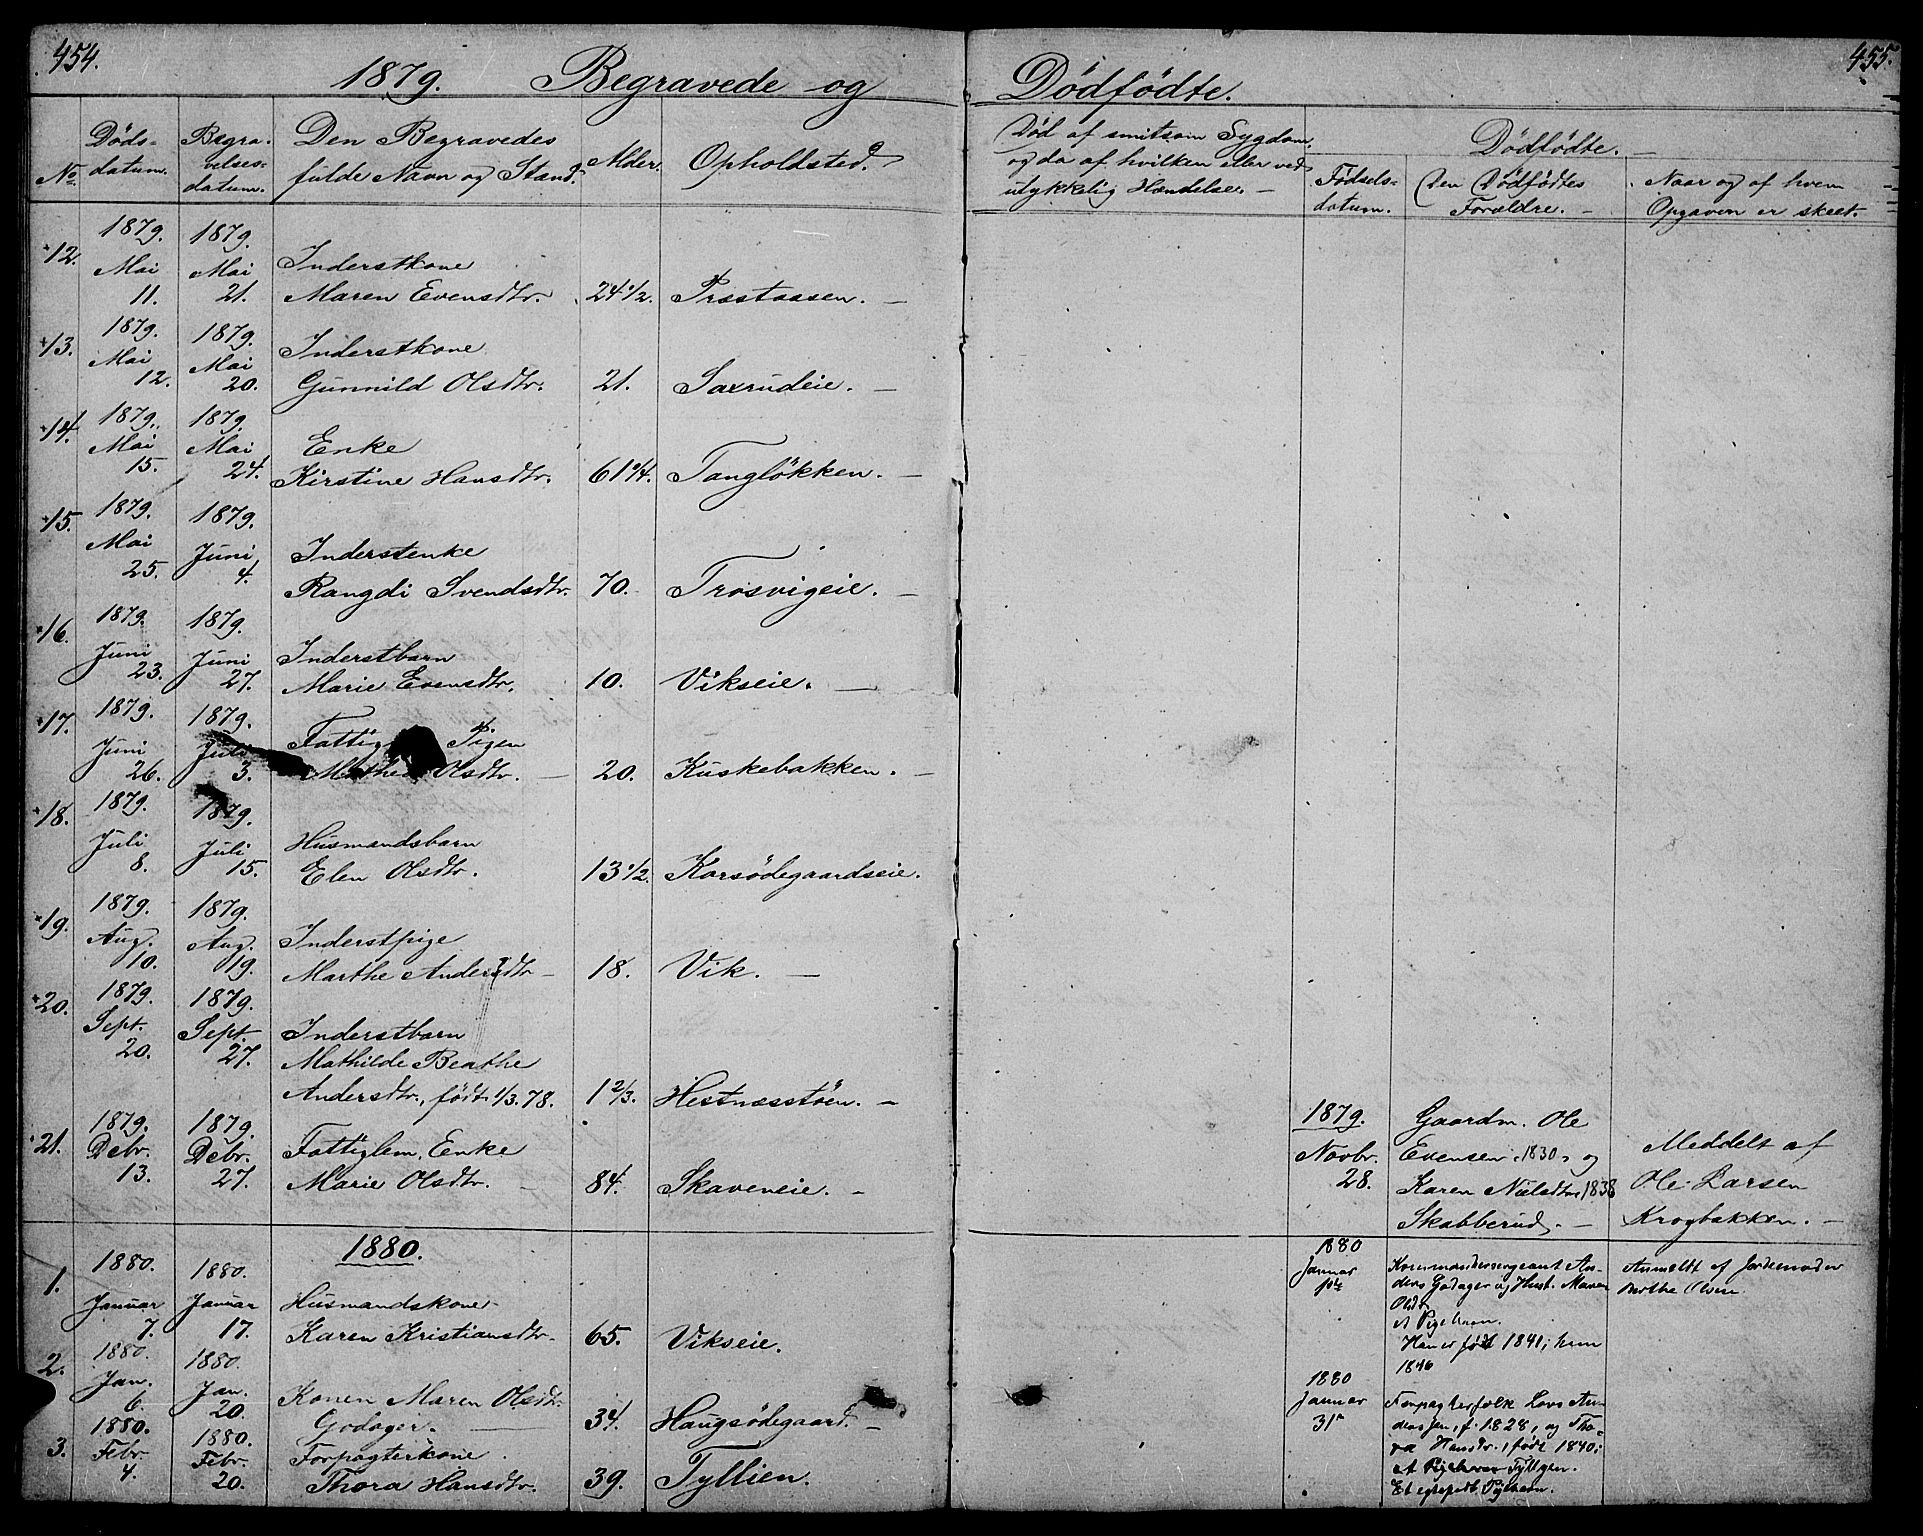 454.
455.
1879. Begravede og Dödfödte.
No.
Döds-
datum.
Begra-
velses-
datum.
Den Begravedes
fulde Navn og Stand.
Alder.
Opholdsted.
Död af smitsom Sygdom
og da af hvilken eller ved
ulykkelig Hændelse. —
Dödfödte. —
Födsels-
datum.
Den Dödfödtes
Forældre. —
Naar og af hvem
Opgaven er skeet.
12. 1879. Mai 11. 1879. Mai 21. Inderstkone
Maren Evensdtr. 24 1/2. Præstaasen. —
13. 1879. Mai 12. 1879. Mai 20. Inderstkone
Gunnild Olsdtr. 21. Saxrudeie. —
14. 1879. Mai 15. 1879. Mai 24. Enke
Kirstine Hansdtr. 61 1/4. Tanglökken. —
15. 1879. Mai 25. 1879. Juni 4. Inderstenke
Rangdi Svendsdtr. 70. Trosvigeie. —
16. 1879. Juni 23. 1879. Juni 27. Inderstbarn
Marie Evensdtr. 10. Vikseie. —
17. 1879. Juni 26. 1879. Juli 3. Pigen
Olsdtr. — 20. Kuskebakken. —
18. 1879. Juli 8. 1879. Juli 15. Husmandsbarn
Elen Olsdtr. 13 1/2. Korsödegaardseie.
19. 1879. Aug. 10. 1879. Aug. 19. Inderstpige
Marthe Andersdtr — 18. Vik. —
20. 1879. Sept. 20. 1879. Sept. 27. Inderstbarn
Mathilde Beathe
Andersdtr., född 1/3. 78. 1 2/3. Hestnæsstöen. —
21. 1879. Debr. 13. 1879. Debr. 27. Fattiglem, Enke
Marie Olsdtr. — 84. Skaveneie. —
1879.
Novbr.
28.
Gaardm. Ole
Evensen, 1830, og
Karen Nielsdtr, 1838
Skabberud. —
Meddelt af
Ole Larsen
Krogbakken. —
1880.
1. 1880. Januar 7. 1880. Januar 17. Husmandskone
Karen Kristiansdtr. 65. Vikseie.
2. 1880. Jan. 6. 1880. Jan. 20. Konen Maren Olsdtr.
Godager. — 34. Haugsödegaard. —
3. 1880. Febr. 4. 1880. Febr. 20. Forpagterkone
Thora Hansdtr. 39. Tyllien.
1880
Januar
Kommandersergeant An-
ders Godager og Hust. Maren
Olsdtr
et Pigebarn.
Han er född 1841; hun
1846
Anmeldt af Jordemoder
Berthe Olsen
1880
Januar
31
Forpagterfolk Lars An-
dersen, f. 1828, og Tho-
ra Hansdtr., född 1840;
Et Pigebarn.